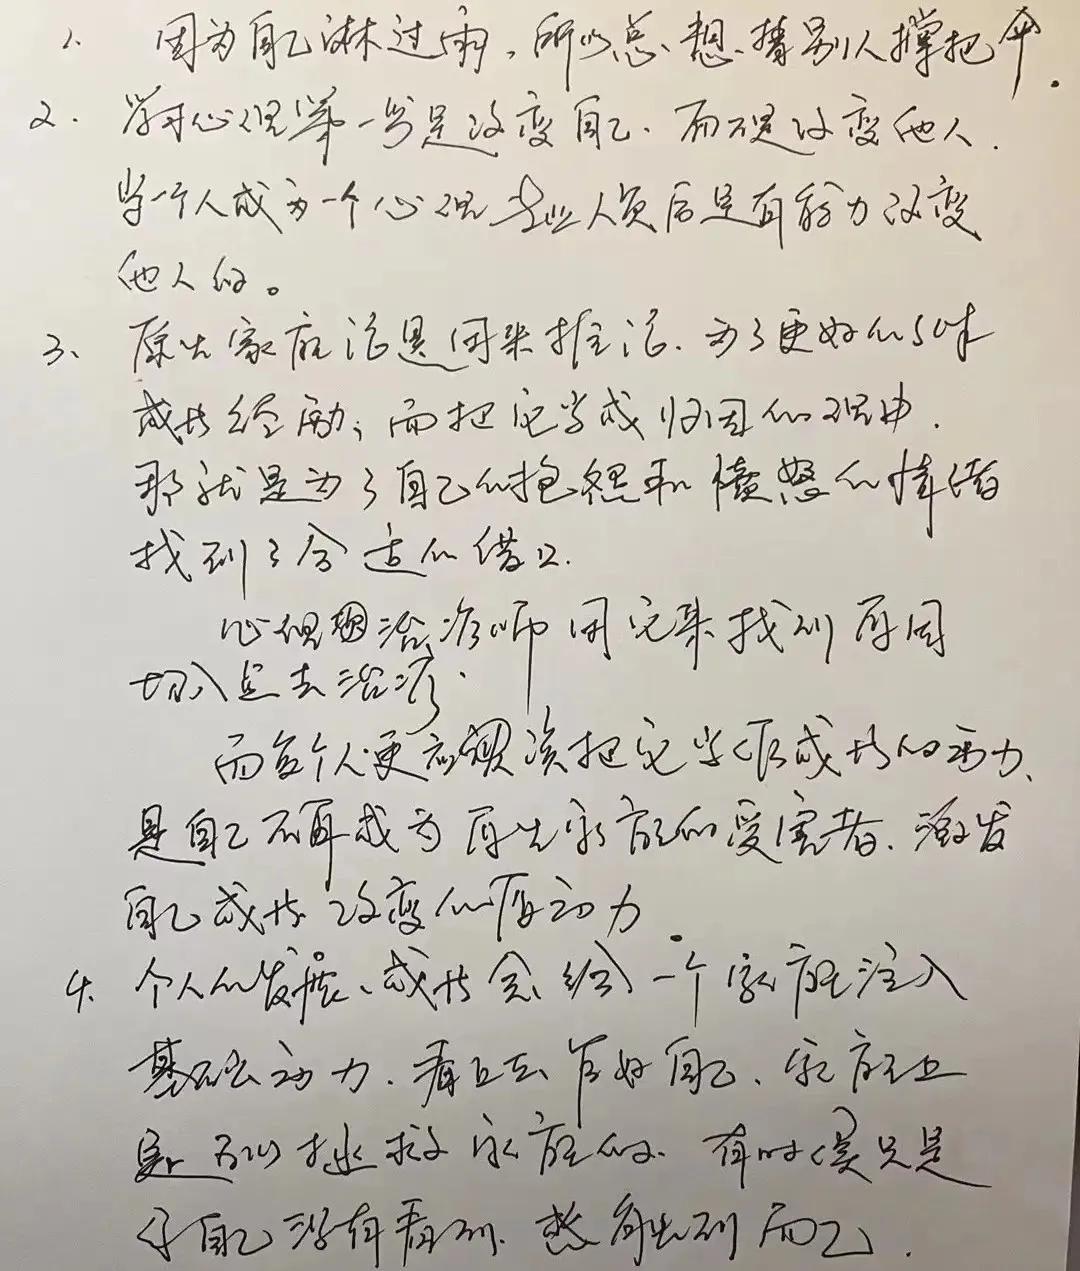 1. 因为自己淋过雨,所以总想替别人撑把伞.
2. 学习心理学一定是改变自己.而不是改变他人.
当一个人成为一个心理专业人员后是有能力改变
他人的。
3、原生家庭论是用来推论.为了更好的
成长经历;而把它当成归因的理由.
那就是为了自己的抱怨和愤怒的情绪
找到了合适的借口.
心理治疗师用它来找到原因
切入点去治疗.
而每个人更应该把它当作成长的动力、
是自己不再成为原生家庭的受害者.激发
自己成长改变的原动力.
4.个人的发展、成长会给一个家庭注入
基础动力.看上去是做好自己、家庭上
是可以拯救家庭的.有时候只是
自己没有看到、感觉到而已.